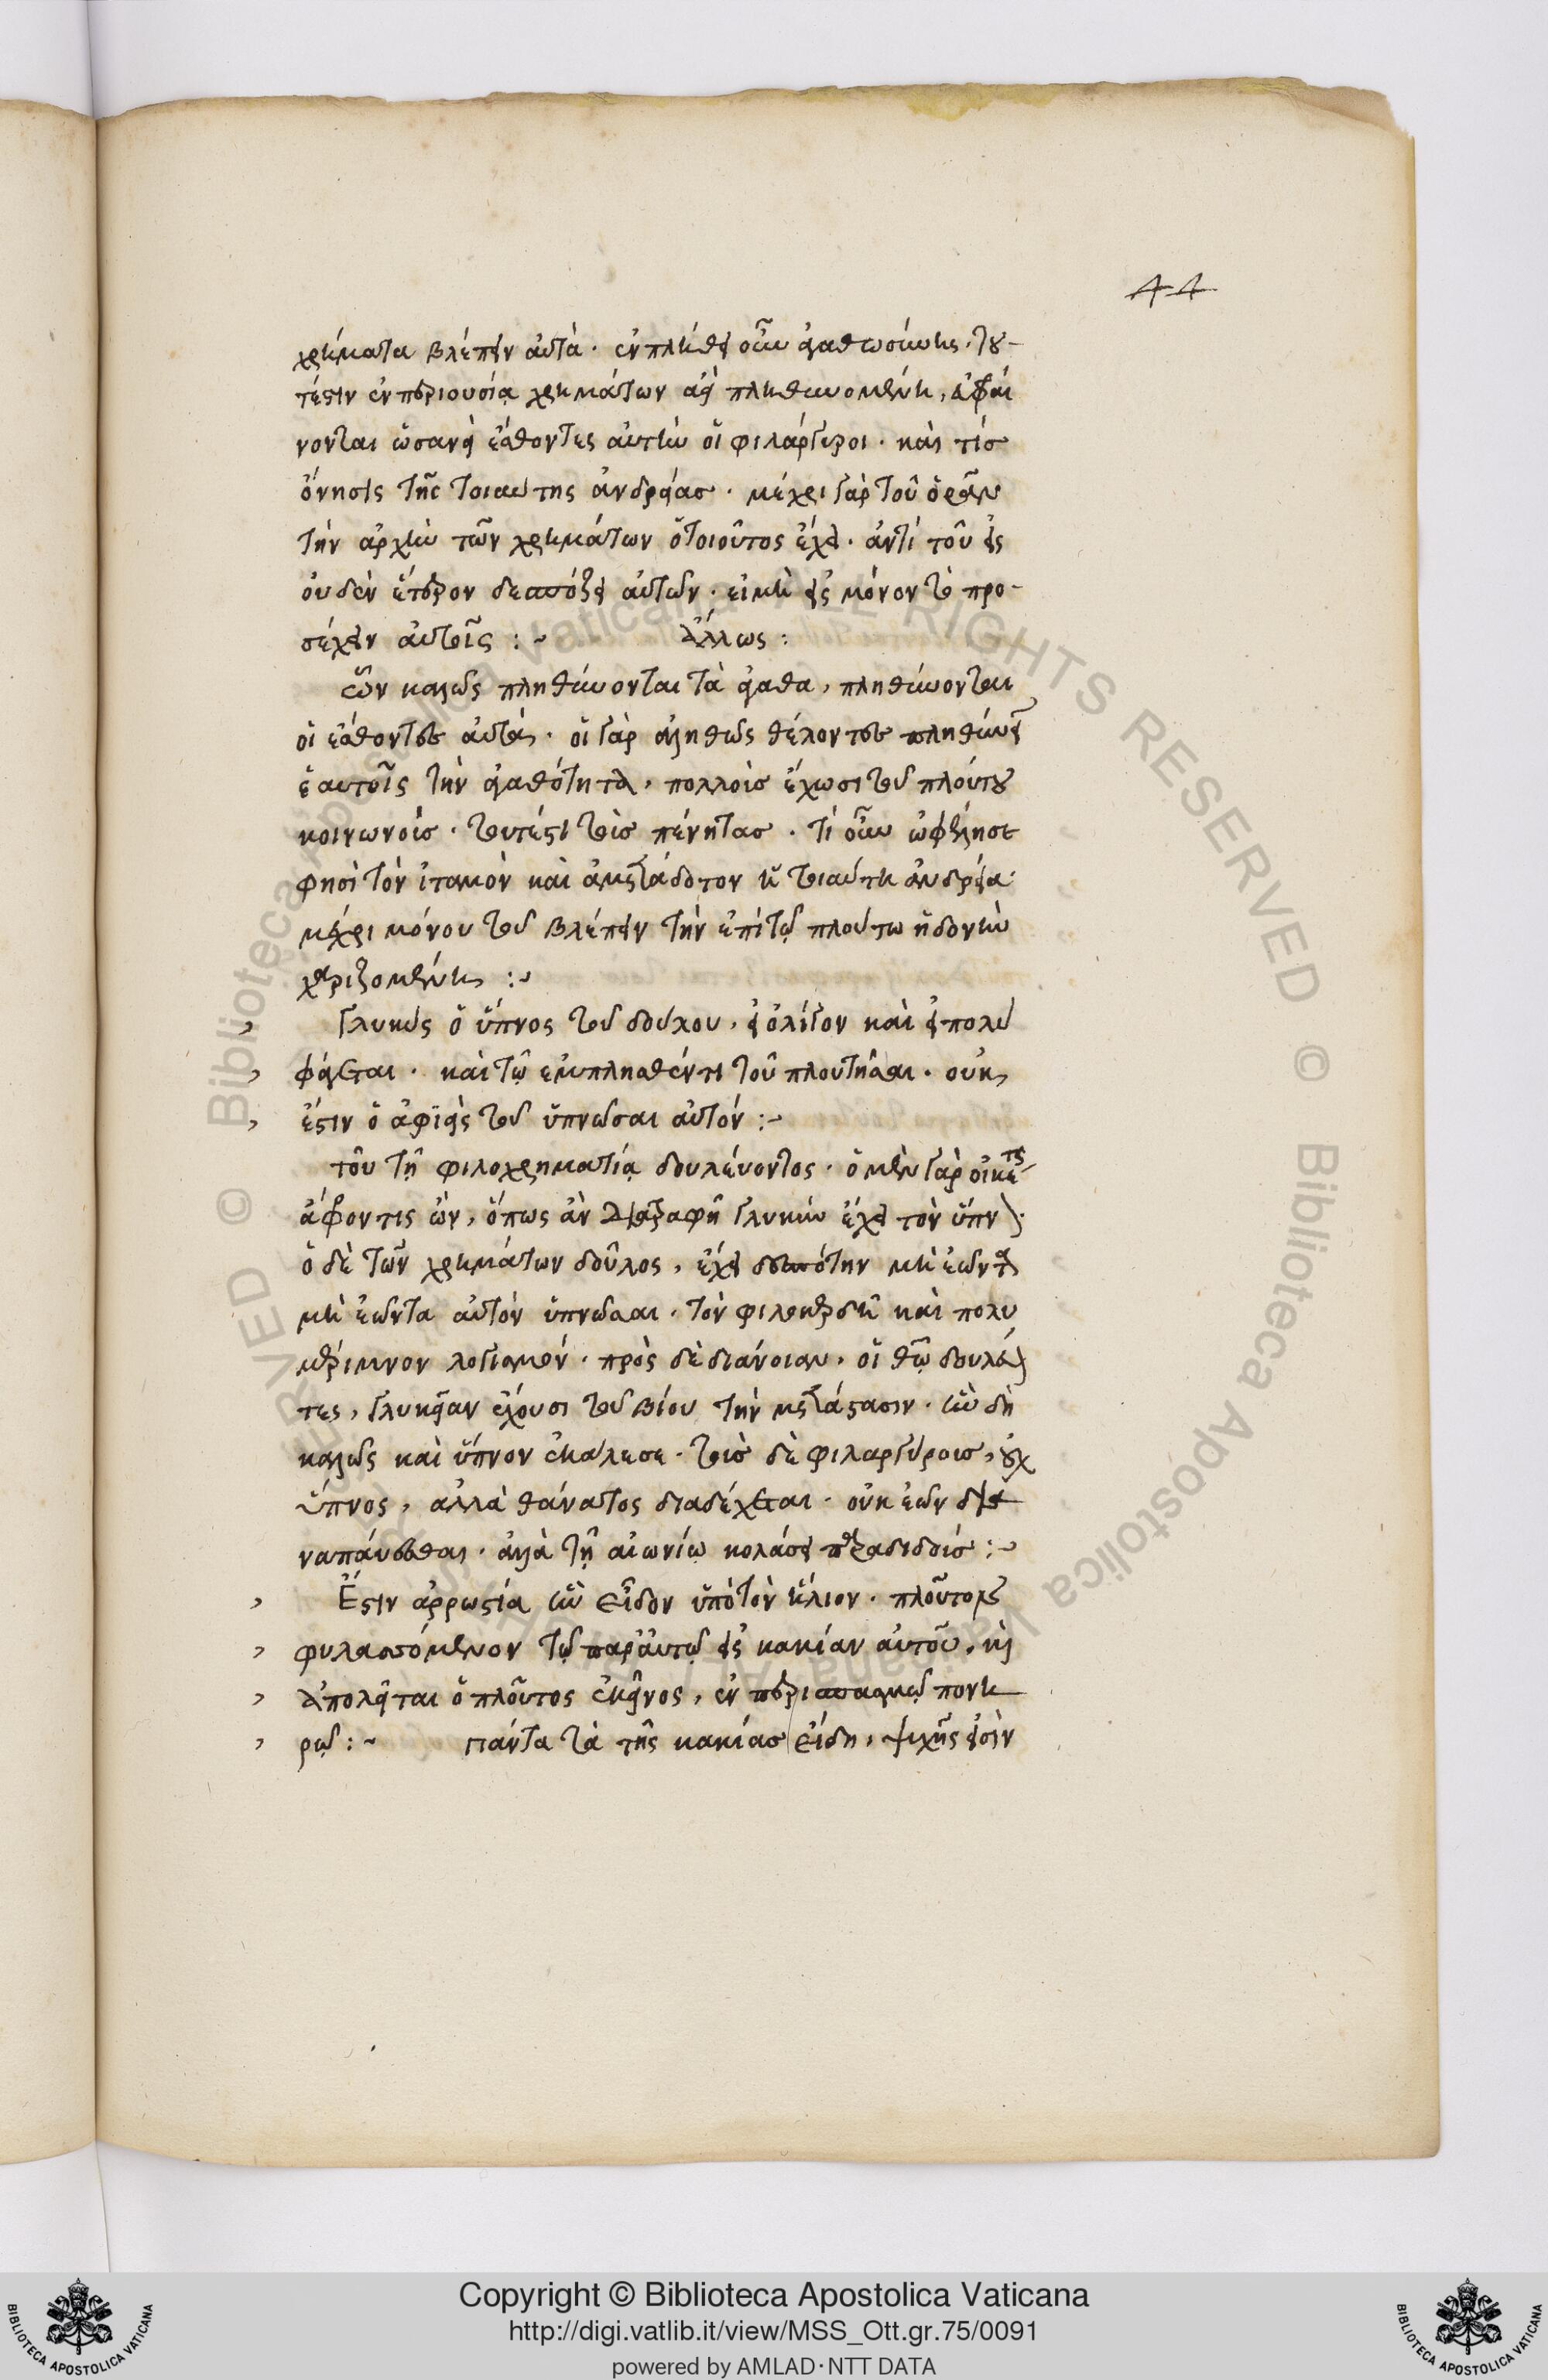 44
χρήματα βλέπειν αὐτά. ἐν πλήθει οὖν ἀγαθωσύνης, του-
τέστιν ἐν περιουσίᾳ χρημάτων ἀεὶ πληθυνομένη,
νονται ὡσανεὶ ἔσθοντες αὐτὴν οἱ φιλάργυροι. καὶ τίσ
ὄνησις τῆς τοιαύτης ἀνδρείασ. μέχρι γὰρ τοῦ ὁρᾶν
τὴν ἀρχὴν τῶν χρημάτων ὁ τοιοῦτος ἔχει. ἀντὶ τοῦ εἰς
οὐδὲν ἕτερον δεσπόζει αὐτῶν. εἰ μὴ εἰς μόνον τὸ προ-
σέχειν αὐτοῖς :~ Ἄλλως:
ὧν καλῶς πληθύνονται τὰ ἀγαθα, πληθύνονται
οἱ ἔσθοντες αὐτά. οἱ γὰρ ἀληθῶς θέλοντες πληθύνειν
ἑαυτοῖς τὴν ἀγαθότητα, πολλοὺσ ἔχωσι τοῦ πλούτου
κοινωνούσ. τουτέστι τοὺσ πένητασ. τί οὖν ὠφέλησε
φησὶ τὸν ἰταμὸν καὶ ἀμετάδοτον ἡ τοιαύτη ἀνδρεία
μέχρι μόνου τοῦ βλέπειν τὴν ἐπὶ τῷ πλούτω ἡδονὴν
χαριζομένη :~
Γλυκὺς ὁ ὕπνος τοῦ δούλου, εἰ ὀλίγον καὶ εἰ πολὺ
φάγεται. καὶ τῷ ἐμπλησθέντι τοῦ πλουτῆσαι. οὐκ
ἔστιν ὁ ἀφιεὶς τοῦ ὑπνῶσαι αὐτόν :~
τοῦ τῇ φιλοχρηματίᾳ δουλεύοντος. ὁ μὲν γὰρ οἰκέτης
ἄφροντις ὢν, ὅπως ἂν διατραφῆ γλυκὺν ἔχει τὸν ὕπνον.
ὁ δὲ τῶν χρημάτων δοῦλος, ἔχει δεσπότην μὴ ἐῶντα
μὴ ἐῶντα αὐτὸν ὑπνῶσαι. τὸν φιλοκερδῆ καὶ πολυ
μέριμνον λογισμόν. πρὸς δὲ διάνοιαν, οἱ θεῷ δουλεύον
τες, γλυκεῖαν ἔχουσι τοῦ βίου τὴν μετάστασιν. ἣν δὴ
καλῶς καὶ ὕπνον ἐκάλεσε. τοὺσ δὲ φιλαργύρουσ, οὐχ
ὕπνος, ἀλλὰ θάνατος διαδέχεται. οὐκ ἐῶν δια
ναπαύεσθαι. ἀλλὰ τῇ αἰωνίῳ κολάσει παραδιδούσ :~
Ἔστιν ἀρρωστία ἣν εἶδον ὑπὸ τὸν ἥλιον. πλοῦτον
φυλασσόμενον τῷ παρ' αὐτῷ εἰς κακίαν αὐτοῦ, καὶ
ἀπολεῖται ὁ πλοῦτος ἐκεῖνος, ἐν περισπασμῷ πονη
ρῷ :~ πάντα τὰ τῆς κακίασ εἴδη, ψυχῆς εἰσὶν
Copyright © Biblioteca Apostolica Vaticana
http://digi.vatlib.it/view/MSS_Ott.gr.75/0091
powered by AMLAD·NTT DATA